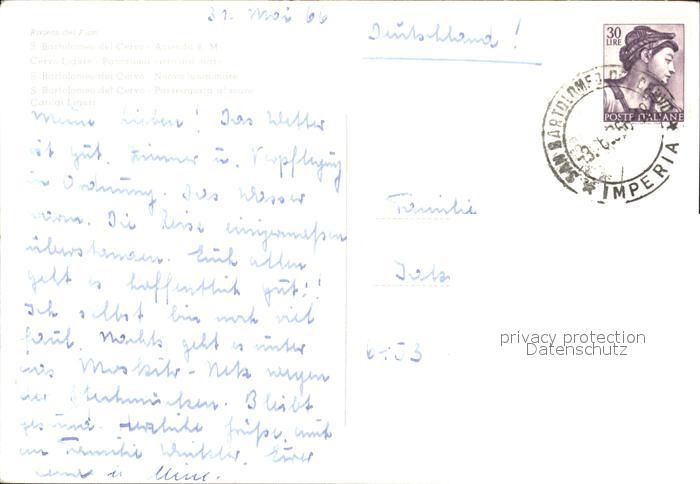 31. Mai 66
Deutschland!
Riviera dei Fiori
S. Bartolomeo del Cervo - Azienda S. M.
Cervo Ligure - Panorama visto dal mare
S. Bartolomeo del Cervo - Nuovo lungomare
S. Bartolomeo del Cervo - Passeggiata al mare
30
LIRE
POSTE ITALIANE
SAN BARTOLOMEO DEL CERVO
IMPERIA
Meine Lieben! Das Wetter
ist gut. Zimmer u. Verpflegung
in Ordnung. Das Wasser
warm. Die Reise einigermaßen
überstanden. Euch allen
geht es hoffentlich gut!!
Ich selbst bin noch viel
faul. Nachts geht es unter
das Moskito-Netz wegen
der Stechmücken. Bleibt
gesund. Herzliche Grüße auch
an Familie Winkler. Eure
u.
Familie
6453
privacy protection
Datenschutz